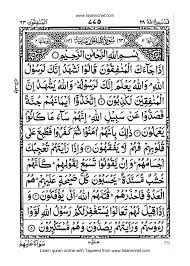 www.islamicnet.com
قد سمع الله ٢٨
المنفقون ٦٣
بِسْمِ اللّٰهِ الرَّحْمٰنِ الرَّحِيْمِ
اِذَا جَآءَكَ الْمُنٰفِقُوْنَ قَالُوْا نَشْهَدُ اِنَّكَ لَرَسُوْلُ
اللّٰهِ وَاللّٰهُ يَعْلَمُ اِنَّكَ لَرَسُوْلُهٗ وَاللّٰهُ يَشْهَدُ اِنَّ
الْمُنٰفِقِيْنَ لَكٰذِبُوْنَ اِتَّخَذُوْٓا اَيْمَانَهُمْ جُنَّةً فَصَدُّوْا
عَنْ سَبِيْلِ اللّٰهِ اِنَّهُمْ سَآءَ مَا كَانُوْا يَعْمَلُوْنَ ذٰلِكَ
بِاَنَّهُمْ اٰمَنُوْا ثُمَّ كَفَرُوْا فَطُبِعَ عَلٰى قُلُوْبِهِمْ فَهُمْ لَا
يَفْقَهُوْنَ وَاِذَا رَاَيْتَهُمْ تُعْجِبُكَ اَجْسَامُهُمْ وَاِنْ
يَّقُوْلُوْا تَسْمَعْ لِقَوْلِهِمْ كَاَنَّهُمْ خُشُبٌ
مُّسَنَّدَةٌ يَحْسَبُوْنَ كُلَّ صَيْحَةٍ عَلَيْهِمْ هُمُ
الْعَدُوُّ فَاحْذَرْهُمْ قَاتَلَهُمُ اللّٰهُ اَنّٰى يُؤْفَكُوْنَ وَ
اِذَا قِيْلَ لَهُمْ تَعَالَوْا يَسْتَغْفِرْ لَكُمْ رَسُوْلُ اللّٰهِ
لَوَّوْا رُءُوْسَهُمْ وَرَاَيْتَهُمْ يَصُدُّوْنَ وَهُمْ
Learn quran online with Tajweed from www.islamicnet.com